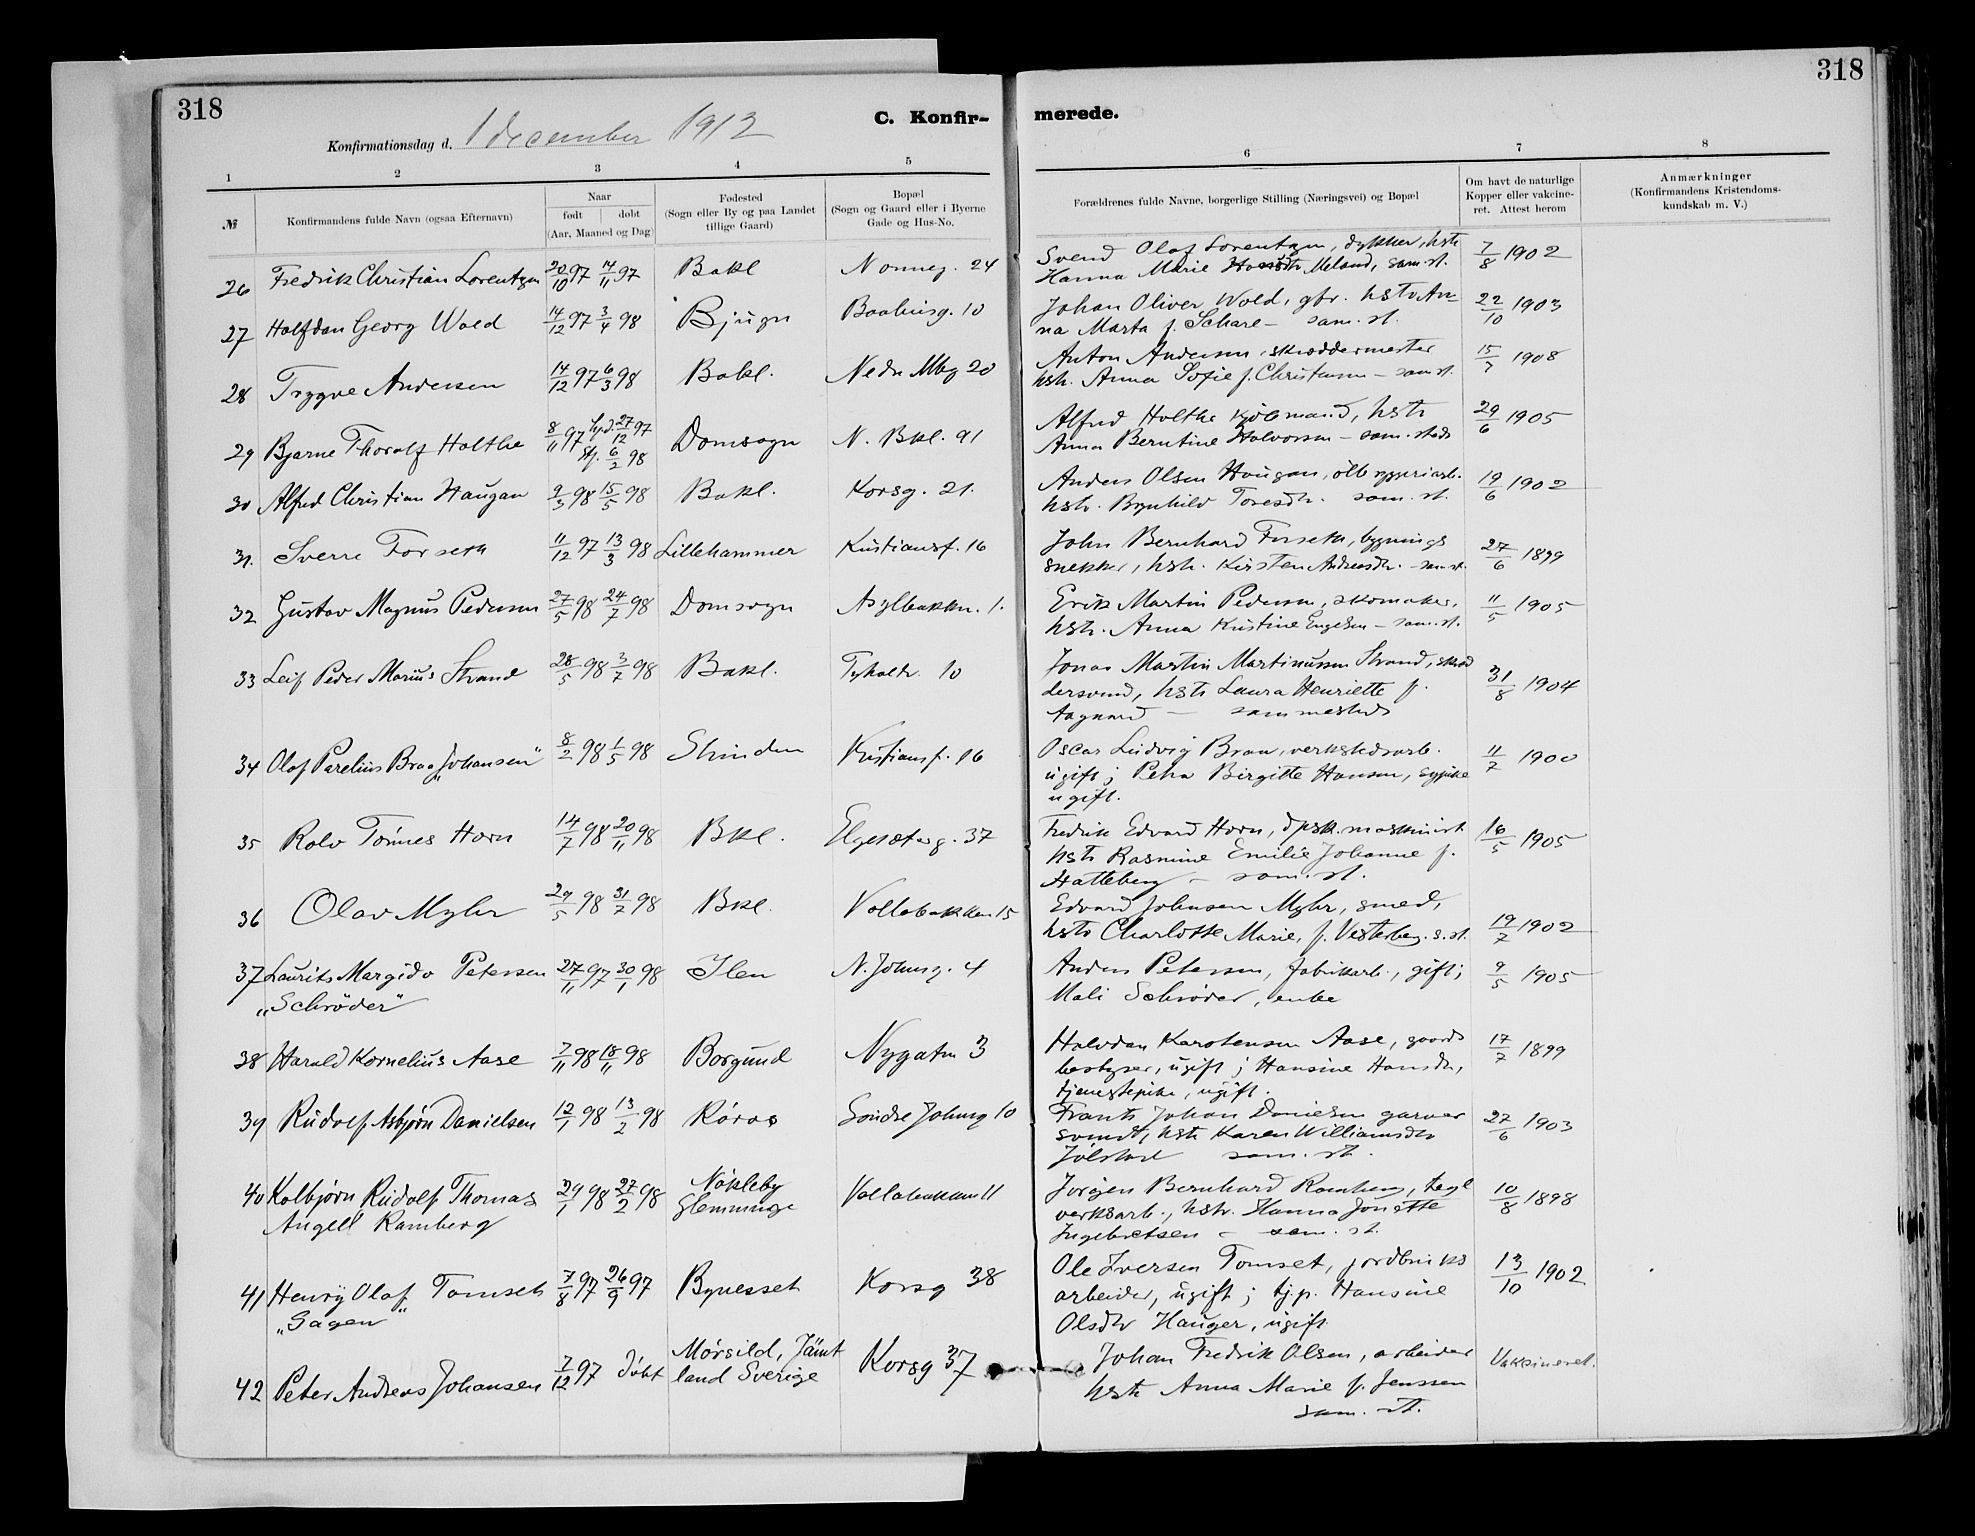 318
318
C. Konfir-
merede.
Konfirmationsdag d. 1 december 1912
1 2 3 4 5
6 7 8
№ Konfirmandens fulde Navn (ogsaa Efternavn)
Naar
født døbt
(Aar, Maaned og Dag)
Fødested
(Sogn eller By og paa Landet
tillige Gaard)
Bopæl
(Sogn og Gaard eller i Byerne
Gade og Hus-No.
Forældrenes fulde Navne, borgerlige Stilling (Næringsvei) og Bopæl
Om havt de naturlige
Kopper eller vakcine-
ret. Attest herom
Anmærkninger
(Konfirmandens Kristendoms-
kundskab m. V.)
26 Fredrik Christian Lorentzen 20/10 97 14/11 97 Bakl Nonneg. 24
Svend Olaf Lorentzen, dykker, hstr
Hanna Marie Meland, sam. st. 7/8 1902
27 Halfdan Georg Wold 14/12 97 3/4 98 Bjugn Baahusg. 10
Johan Oliver Wold, gbr. hstr An-
na Marta f. Schare – sam. st. 22/10 1903
28 Trygve Andersen 14/12 97 6/3 98 Bakl. Nedr Mbg 20
Anton Andersen, skræddermester
hstr. Anna Sofie f. Christensen – sam st. 15/7 1908
29 Bjarne Thoralf Holthe 8/11 97 hjd. 27/12 97
stf. 6/2 98 Domsogn N. Bkl. 91
Alfred Holthe kjøbmand, hstr
Anna Berntine Halvorsen – sam. steds 29/6 1905
30 Alfred Christian Haugan 9/3 98 15/5 98 Bakl. Korsg. 21.
Anders Olsen Haugan, ølbryggeriarb.
hstr. Brynhild Toresdtr. sam. st. 19/6 1902
31. Sverre Forseth 11/12 97 13/3 98 Lillehammer Kristiansf. 16
John Bernhard Forseth, bygnings
snekker, hstr. Kirsten Andreasdtr. – sam st. 27/6 1899
32 Gustav Magnus Pedersen 27/5 98 24/7 98 Domsogn Asylbakken. 1.
Erik Martin Pedersen, skomaker,
hstr. Anna Kristine Engelsen – sam. st. 11/5 1905
33 Leif Peder Marius Strand 28/5 98 3/7 98 Bakl. Tyholtv. 10
Jonas Martin Martinussen Strand, skræd
dersvend, hstr Laura Henriette f.
Aagaard – sammesteds 31/8 1904
34 Olaf Parelius Braa „Johansen“ 8/2 98 1/5 98 Strinden Kristiansf. 16
Oscar Ludvig Braa, verkstedsarb.
ugift; Petra Birgitte Hansen, sypike
ugift. 11/7 1900
35 Rolv Tønnes Horn 14/7 98 20/11 98 Bkl. Elgesæterg. 37
Fredrik Edvard Horn, dpsk. maskinist
hstr Rasmine Emilie Johanne f.
Hatteberg – sam. st. 16/5 1905
36 Olav Myhr 29/5 98 31/7 98 Bkl. Vollabakken 15
Edvard Johnsen Myhr, smed,
hstr Charlotte Marie, f. Vesterberg. s. st. 19/7 1902
37 Laurits Margido Petersen 27/11 97 30/1 98 Ilen N. Johnsg. 4
„Schrøder“
Anders Petersen, fabrikarb., gift;
Mali Schrøder, enke 9/5 1905
38 Harald Kornelius Aase 7/11 98 18/11 98 Borgund Nygatn 3
Halvdan Karstensen Aase, gaards
bestyrer, ugift; Hansine Hansdtr,
tjenestepike, ugift. 17/7 1899
39 Rudolf Asbjørn Danielsen 12/1 98 13/2 98 Røros Søndre Johnsg 10
Frants Johan Danielsen garver
svend, hstr Karen Williamsdtr
Jølstad sam. st. 27/6 1903
40 Kolbjørn Rudolf Thomas 29/1 98 27/2 98 Nøkleby Vollabakken 11
Angell Ramberg Glemminge
Jørgen Bernhard Ramberg, tegl
verksarb., hstr. Hanna Jonette
Ingebretsen – sam. st. 10/8 1898
41 Henry Olaf Tomset 7/8 97 26/9 97 Bynesset Korsg 38
„Gagen“
Ole Iversen Tomset, jordbruks
arbeider, ugift; tj.p. Hansine
Olsdtr Hauger, ugift 13/10 1902
42 Peter Andreas Johansen 7/12 97 døbt Mørsild, Jämt
land Sverige Korsg 37
Johan Fredrik Olsen, arbeider
hstr Anna Marie f. Jenssen
sam. st. Vaksineret.